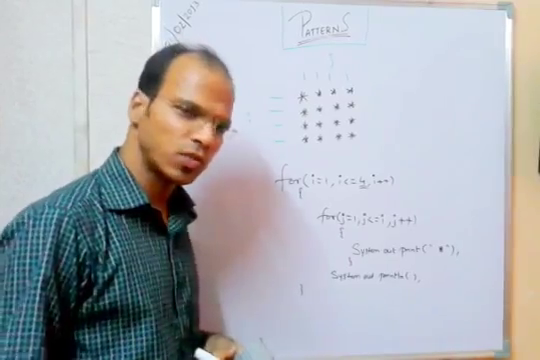 /02/2013
PATTERNS
* * * *
* * * *
* * * *
* * * *
for(i=1, i<=4, i++)
{
for(j=1, j<=i, j++)
{
System out print(" * "),
}
System out println( ),
}